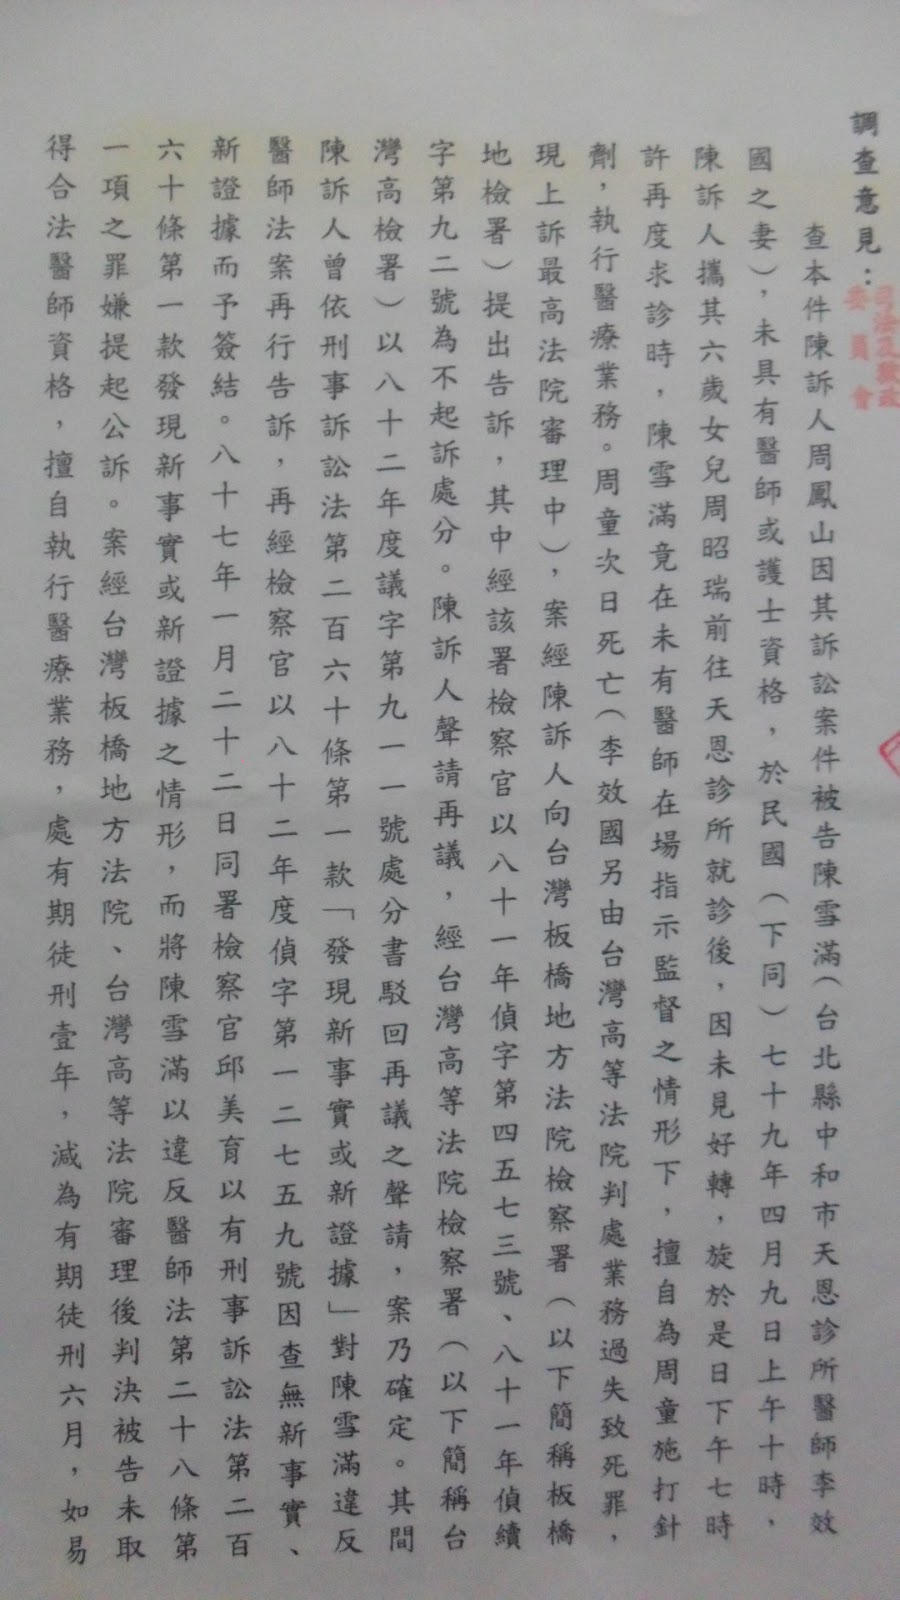 調查意見：
司法及獄政
委員會
查本件陳訴人周鳳山因其訴訟案件被告陳雪滿（台北縣中和市天恩診所醫師李效
國之妻），未具有醫師或護士資格，於民國（下同）七十九年四月九日上午十時，
陳訴人攜其六歲女兒周昭瑞前往天恩診所就診後，因未見好轉，旋於是日下午七時
許再度求診時，陳雪滿竟在未有醫師在場指示監督之情形下，擅自為周童施打針
劑，執行醫療業務。周童次日死亡（李效國另由台灣高等法院判處業務過失致死罪，
現上訴最高法院審理中），案經陳訴人向台灣板橋地方法院檢察署（以下簡稱板橋
地檢署）提出告訴，其中經該署檢察官以八十一年偵字第四五七三號、八十一年偵續
字第九二號為不起訴處分。陳訴人聲請再議，經台灣高等法院檢察署（以下簡稱台
灣高檢署）以八十二年度議字第九一一號處分書駁回再議之聲請，案乃確定。其間
陳訴人曾依刑事訴訟法第二百六十條第一款「發現新事實或新證據」對陳雪滿違反
醫師法案再行告訴，再經檢察官以八十二年度偵字第一二七五九號因查無新事實、
新證據而予簽結。八十七年一月二十二日同署檢察官邱美育以有刑事訴訟法第二百
六十條第一款發現新事實或新證據之情形，而將陳雪滿以違反醫師法第二十八條第
一項之罪嫌提起公訴。案經台灣板橋地方法院、台灣高等法院審理後判決被告未取
得合法醫師資格，擅自執行醫療業務，處有期徒刑壹年，減為有期徒刑六月，如易